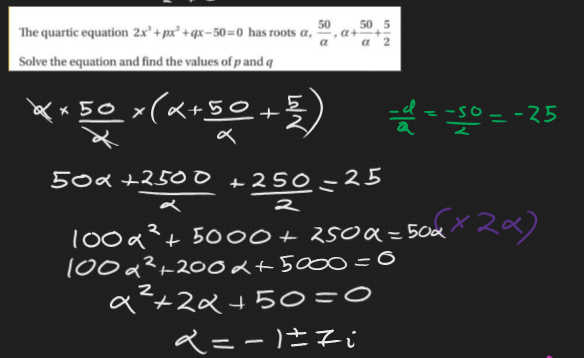 The quartic equation 2x³+px²+qx−50=0 has roots α, 50/α, α+50/α+5/2
Solve the equation and find the values of p and q
α × 50/α × (α + 50/α + 5/2)
-d/a = -50/2 = -25
50α + 2500/α + 250/2 = 25
100α² + 5000 + 250α = 50α (× 2α)
100α² + 200α + 5000 = 0
α² + 2α + 50 = 0
α = -1 ± 7i